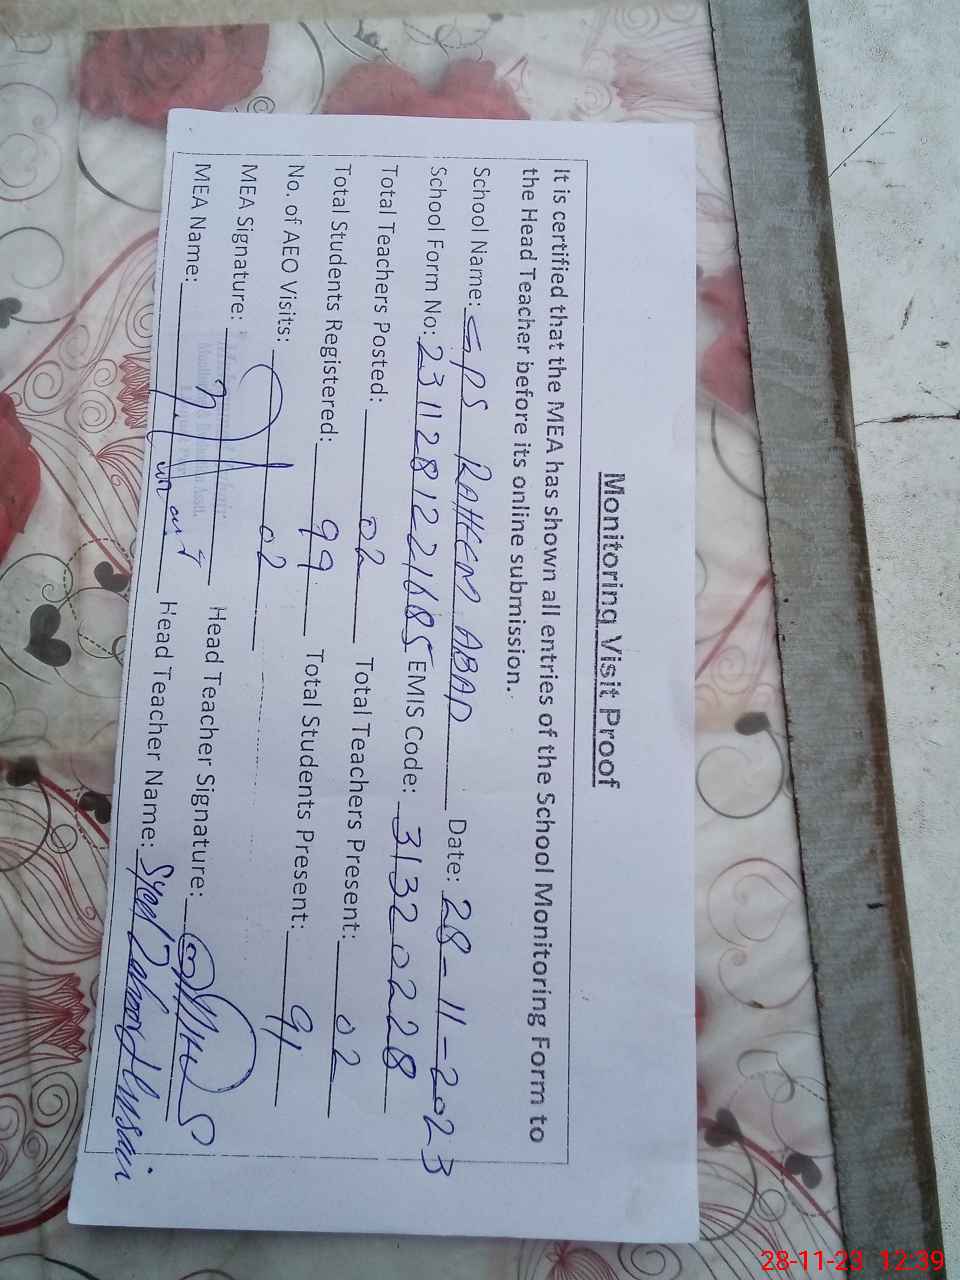 Monitoring Visit Proof
It is certified that the MEA has shown all entries of the School Monitoring Form to
the Head Teacher before its online submission.
School Name: GPS RAHEM ABAD Date: 28-11-2023
School Form No: 2311281221685 EMIS Code: 31320228
Total Teachers Posted: 02 Total Teachers Present: 02
Total Students Registered: 99 Total Students Present: 91
No. of AEO Visits: 02
MEA Signature: Head Teacher Signature:
MEA Name: Head Teacher Name: Syed Zahoor Hussain
28-11-23 12:39